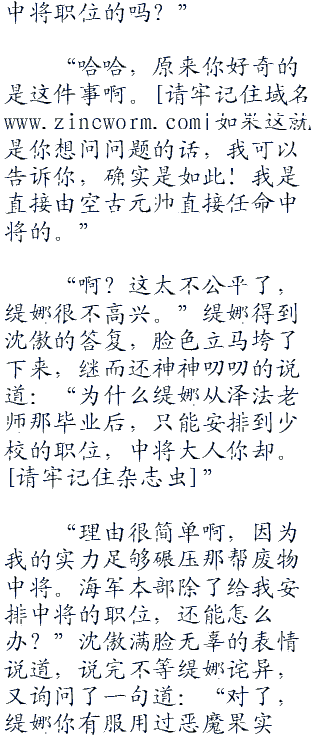 中将职位的吗？”
“哈哈，原来你好奇的
是这件事啊。[请牢记住域名
www.zincworm.com|如果这就
是你想问问题的话，我可以
告诉你，确实是如此！我是
直接由空古元帅直接任命中
将的。”
“啊？这太不公平了，
缇娜很不高兴。”缇娜得到
沈傲的答复，脸色立马垮了
下来，继而还神神叨叨的说
道：“为什么缇娜从泽法老
师那毕业后，只能安排到少
校的职位，中将大人你却。
[请牢记住杂志虫]”
“理由很简单啊，因为
我的实力足够碾压那帮废物
中将。海军本部除了给我安
排中将的职位，还能怎么
办？”沈傲满脸无辜的表情
说道，说完不等缇娜诧异，
又询问了一句道：“对了，
缇娜你有服用过恶魔果实